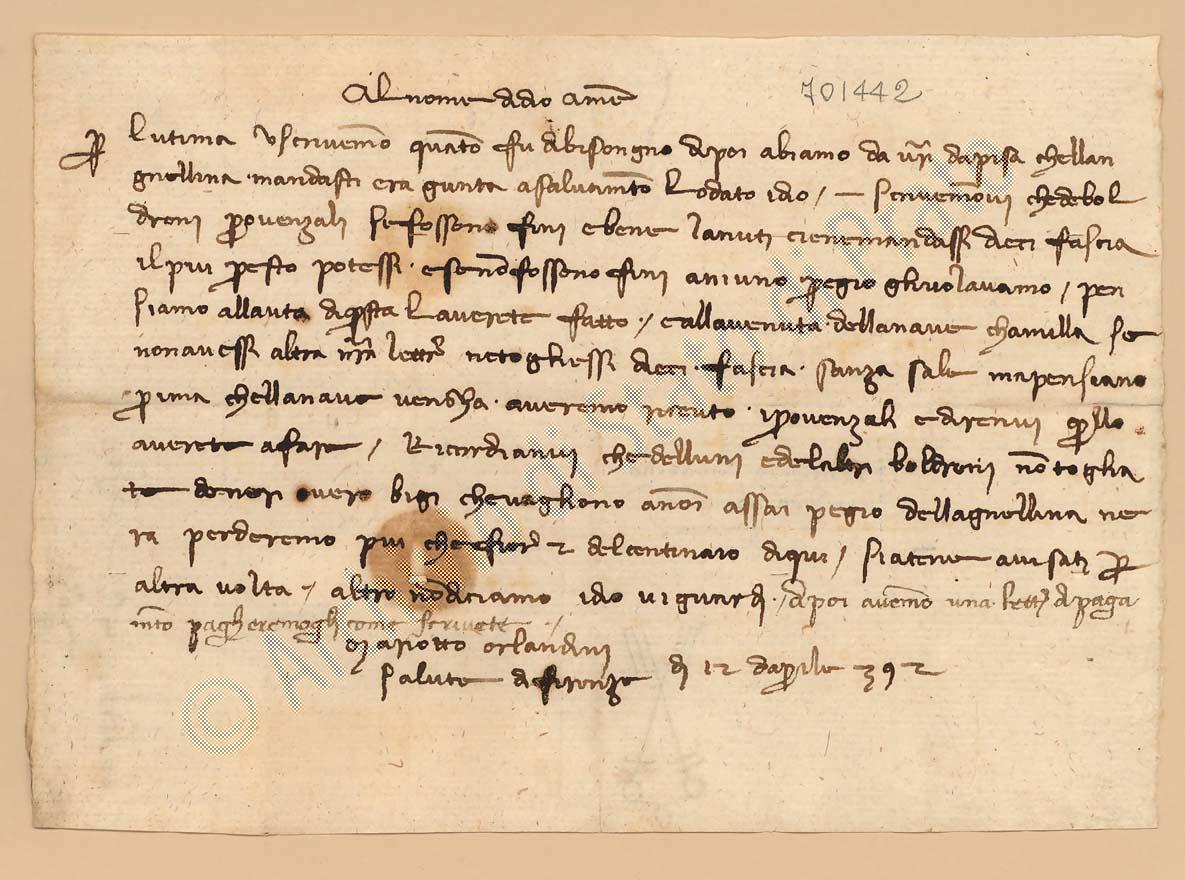 Al nome di dio amē
701442
P lutima vscrivemo quāto fu di bisongno dipoi abiamo da vr̄i da pisa chellan
gnellina mandasti era gunta a salvam̄to lodato idio / — scrivemovi che de bol
droni provenzali se fossono fini e bene lanuti cienemandassi dieci fascia
il piu presto potessi e se nō fossono fini aniuno pregio gli volavamo / pen
siamo allauta di q̄sta laverete fatto / e alla venuta della nave chamilla se
non avessi altra nr̄a letr̄a ne togliessi dieci fascia sanza fale ma pensiano
prima chella nave vengha averemo ricevto i provenzali e direnvi q̄llo
averete a fare / Ricordianvi che delluni e delaltri boldroni nō toglia
te de neri overo bigi che vagliono a noi assai pegio dellagnellina ne
ra perderemo piu che fior̄ 2 del centinaio di qui / siatene avisati P
altra volta / altro nō diciamo idio vi guardi / dipoi avemo una lettr̄ di paga
mēto pagheremogli come scrivete /
Mariotto orlandini
salute di firenze di 12 daprile 392
© Archivio di Stato di Prato